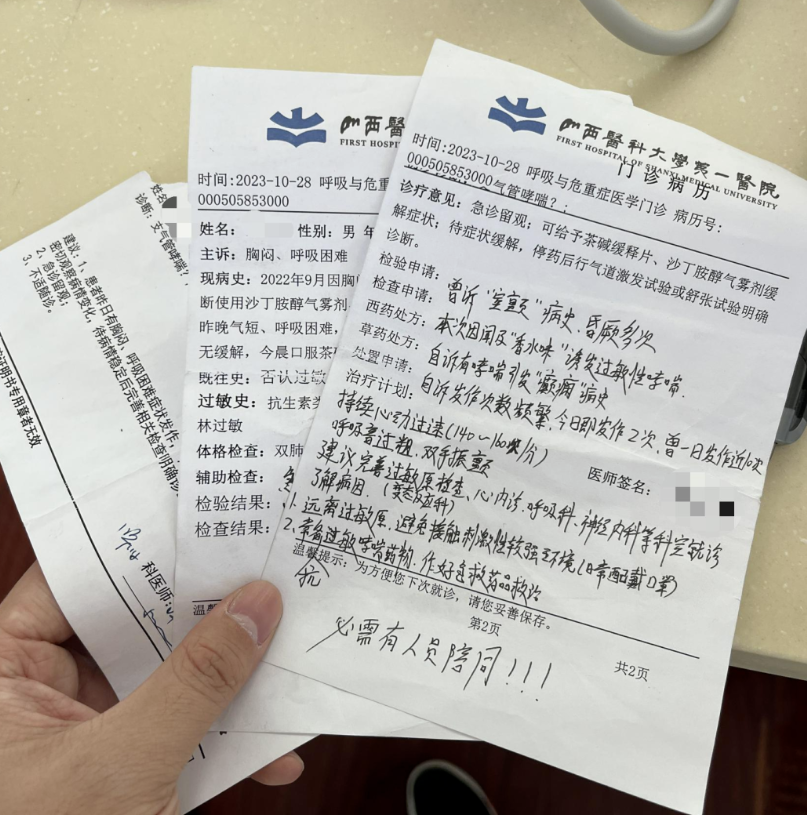 建议：1、患者昨日有胸闷、呼吸困难症状发作，
密切观察病情变化，待病情稳定后完善相关检查明确诊
2、急诊留观；
3、不适随诊。
姓名
诊断：支气管哮喘？
证明书专用章者无效
科医师：
山西醫
FIRST HOSPI
时间:2023-10-28 呼吸与危重
000505853000
姓名： 性别：男 年
主诉：胸闷、呼吸困难
现病史：2022年9月因胸
断使用沙丁胺醇气雾剂
昨晚气短、呼吸困难，
无缓解，今晨口服茶
既往史：否认过敏
过敏史：抗生素类
林过敏
体格检查：双肺
辅助检查：
检验结果：
检查结果：
温
山西醫科大學第一醫院
FIRST HOSPITAL OF SHANXI MEDICAL UNIVERSITY
门诊病历
时间:2023-10-28 呼吸与危重症医学门诊 病历号：
000505853000
支气管哮喘？；
诊疗意见：急诊留观；可给予茶碱缓释片、沙丁胺醇气雾剂缓
解症状；待症状缓解，停药后行气道激发试验或舒张试验明确
诊断。
检验申请：
检查申请：
西药处方：
草药处方：
处置申请：
治疗计划：
曾诉“室颤”病史，昏厥多次
本次因闻及“香水味”诱发过敏性哮喘.
自诉有哮喘引发“癫痫”病史
自诉发作次数频繁，今日即发作2次，曾一日发作近10次
持续心动过速(140～160次/分)
呼吸音过粗，双手振颤
医师签名：
建议完善过敏原检查、心内诊、呼吸科、神经内科等科室就诊
了解病因.（变态反应科）
1.远离过敏原，避免接触刺激性较强环境(日常配戴口罩)
2.常备过敏哮喘药物，作好自救药品救治
温馨提示：为方便您下次就诊，请您妥善保存。
第2页
共2页
必需有人员陪同！！！